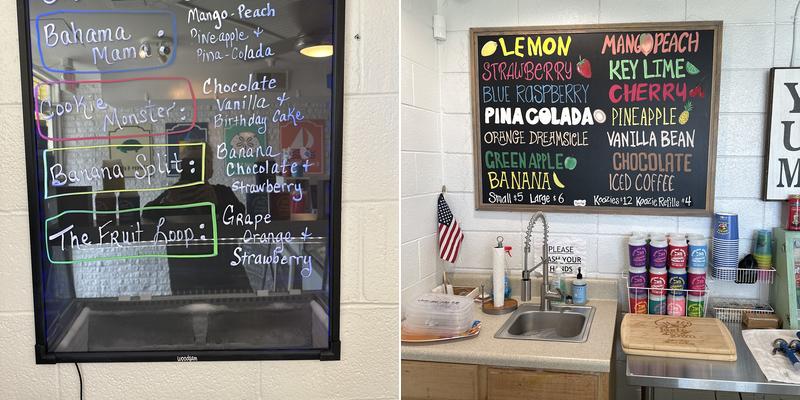 Bahama
Mama:
Mango-Peach
Pineapple &
Pina-Colada
Cookie
Monster:
Chocolate
Vanilla &
Birthday Cake
Banana Split:
Banana
Chocolate &
Strawberry
The Fruit Loop:
Grape
Orange &
Strawberry
woodsam
LEMON
STRAWBERRY
BLUE RASPBERRY
PINA COLADA
ORANGE DREAMSICLE
GREEN APPLE
BANANA
Small $5 Large $6
MANGO PEACH
KEY LIME
CHERRY
PINEAPPLE
VANILLA BEAN
CHOCOLATE
ICED COFFEE
Koozies $12 Koozie Refills $4
PLEASE
WASH YOUR
HANDS
Y
U
M